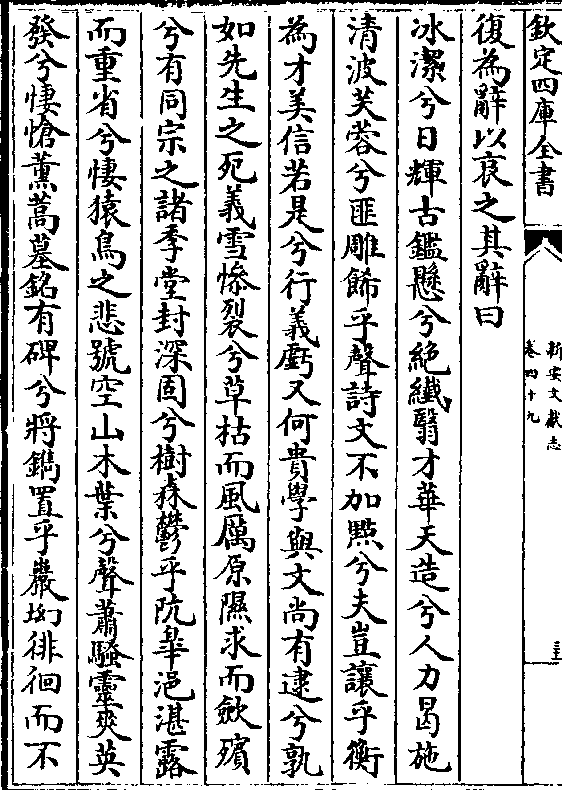 欽定四庫全書
新安文獻志
卷四十九
復為辭以哀之其辭曰
冰潔兮日輝古鑑懸兮絶纖翳才華天造兮人力曷施
清波芙蓉兮匪雕飾乎聲詩文不加㸃兮夫豈讓乎衡
為才美信若是兮行義虧又何貴學與文尚有逮兮孰
如先生之死義雪慘裂兮草枯而風厲原隰求而斂殯
兮有同宗之諸季堂封深固兮樹森鬱乎阬臯浥湛露
而重省兮悽猿鳥之悲號空山木葉兮聲蕭騷靈爽英
發兮悽愴薰蒿墓銘有碑兮將鐫置乎巖坳徘徊而不